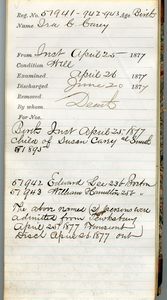 Reg. No. 67941-942-943 Age Birth
Name Ira C Carey
From Inst April 25 1877
Condition Well
Examined April 26 1877
Discharged June 20 1877
Removed
By whom Dead
For Nos.
Birth Inst April 25, 1877
Child of Susan Carey
67942 Edward Lee 23
67943 William Hamilton 25
The above named 2 persons were
admitted from Tewksbury
April 25th 1877
Discd April 26 1877 out